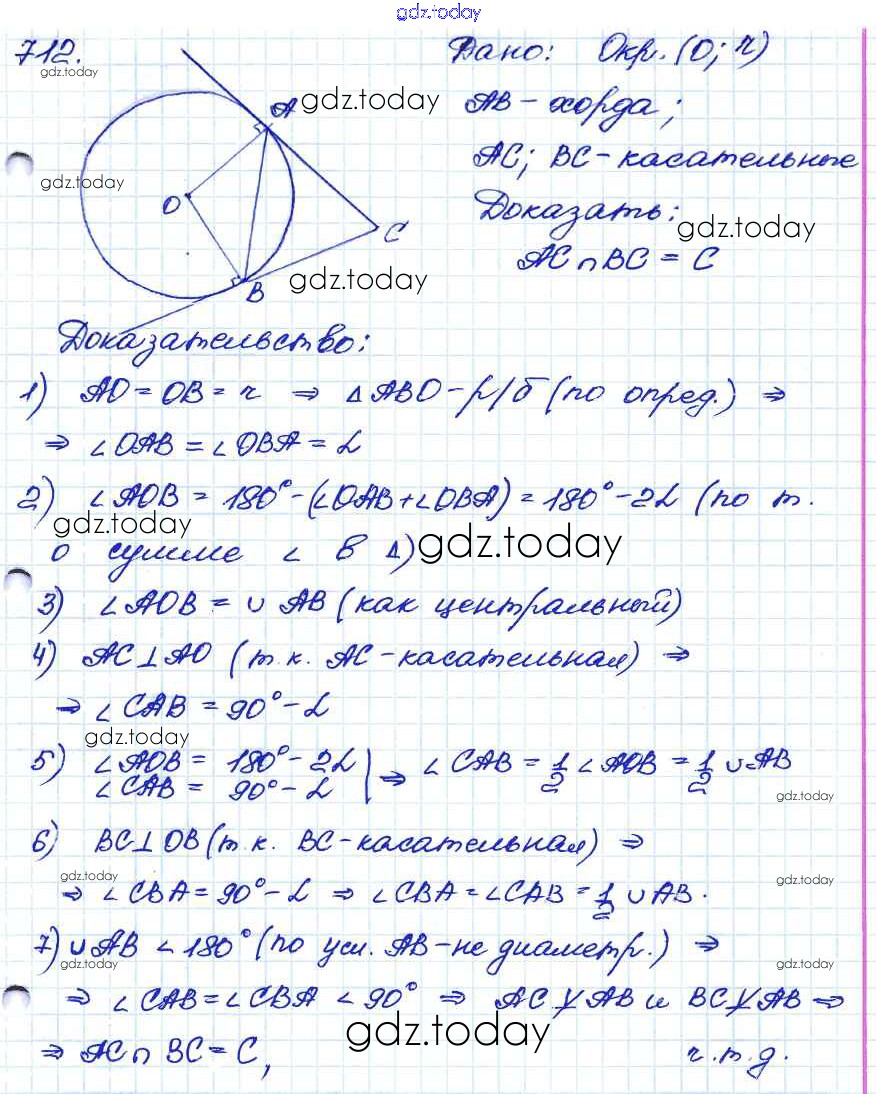 gdz.today
712.
gdz.today
Дано: Окр. (O; r)
A gdz.today
AB - хорда;
AC; BC - касательные
gdz.today
O
Доказать:
C
gdz.today
AC ∩ BC = C
gdz.today
B
Доказательство:
1) AO = OB = r ⇒ △ABO - р/б (по опред.) ⇒
⇒ ∠OAB = ∠OBA = α
2) ∠AOB = 180° - (∠OAB + ∠OBA) = 180° - 2α (по т.
gdz.today
о сумме ∠ в △) gdz.today
3) ∠AOB = ∪ AB (как центральный)
4) AC ⊥ AO (т.к. AC - касательная) ⇒
⇒ ∠CAB = 90° - α
gdz.today
5) ∠AOB = 180° - 2α
∠CAB = 90° - α | ⇒ ∠CAB = 1/2 ∠AOB = 1/2 ∪AB
gdz.today
6) BC ⊥ OB (т.к. BC - касательная) ⇒
gdz.today
gdz.today
⇒ ∠CBA = 90° - α ⇒ ∠CBA = ∠CAB = 1/2 ∪ AB.
7) ∪AB < 180° (по усл. AB - не диаметр.) ⇒
gdz.today
gdz.today
⇒ ∠CAB = ∠CBA < 90° ⇒ AC ⊥̸ AB и BC ⊥̸ AB ⇒
gdz.today
⇒ AC ∩ BC = C, ч.т.д.